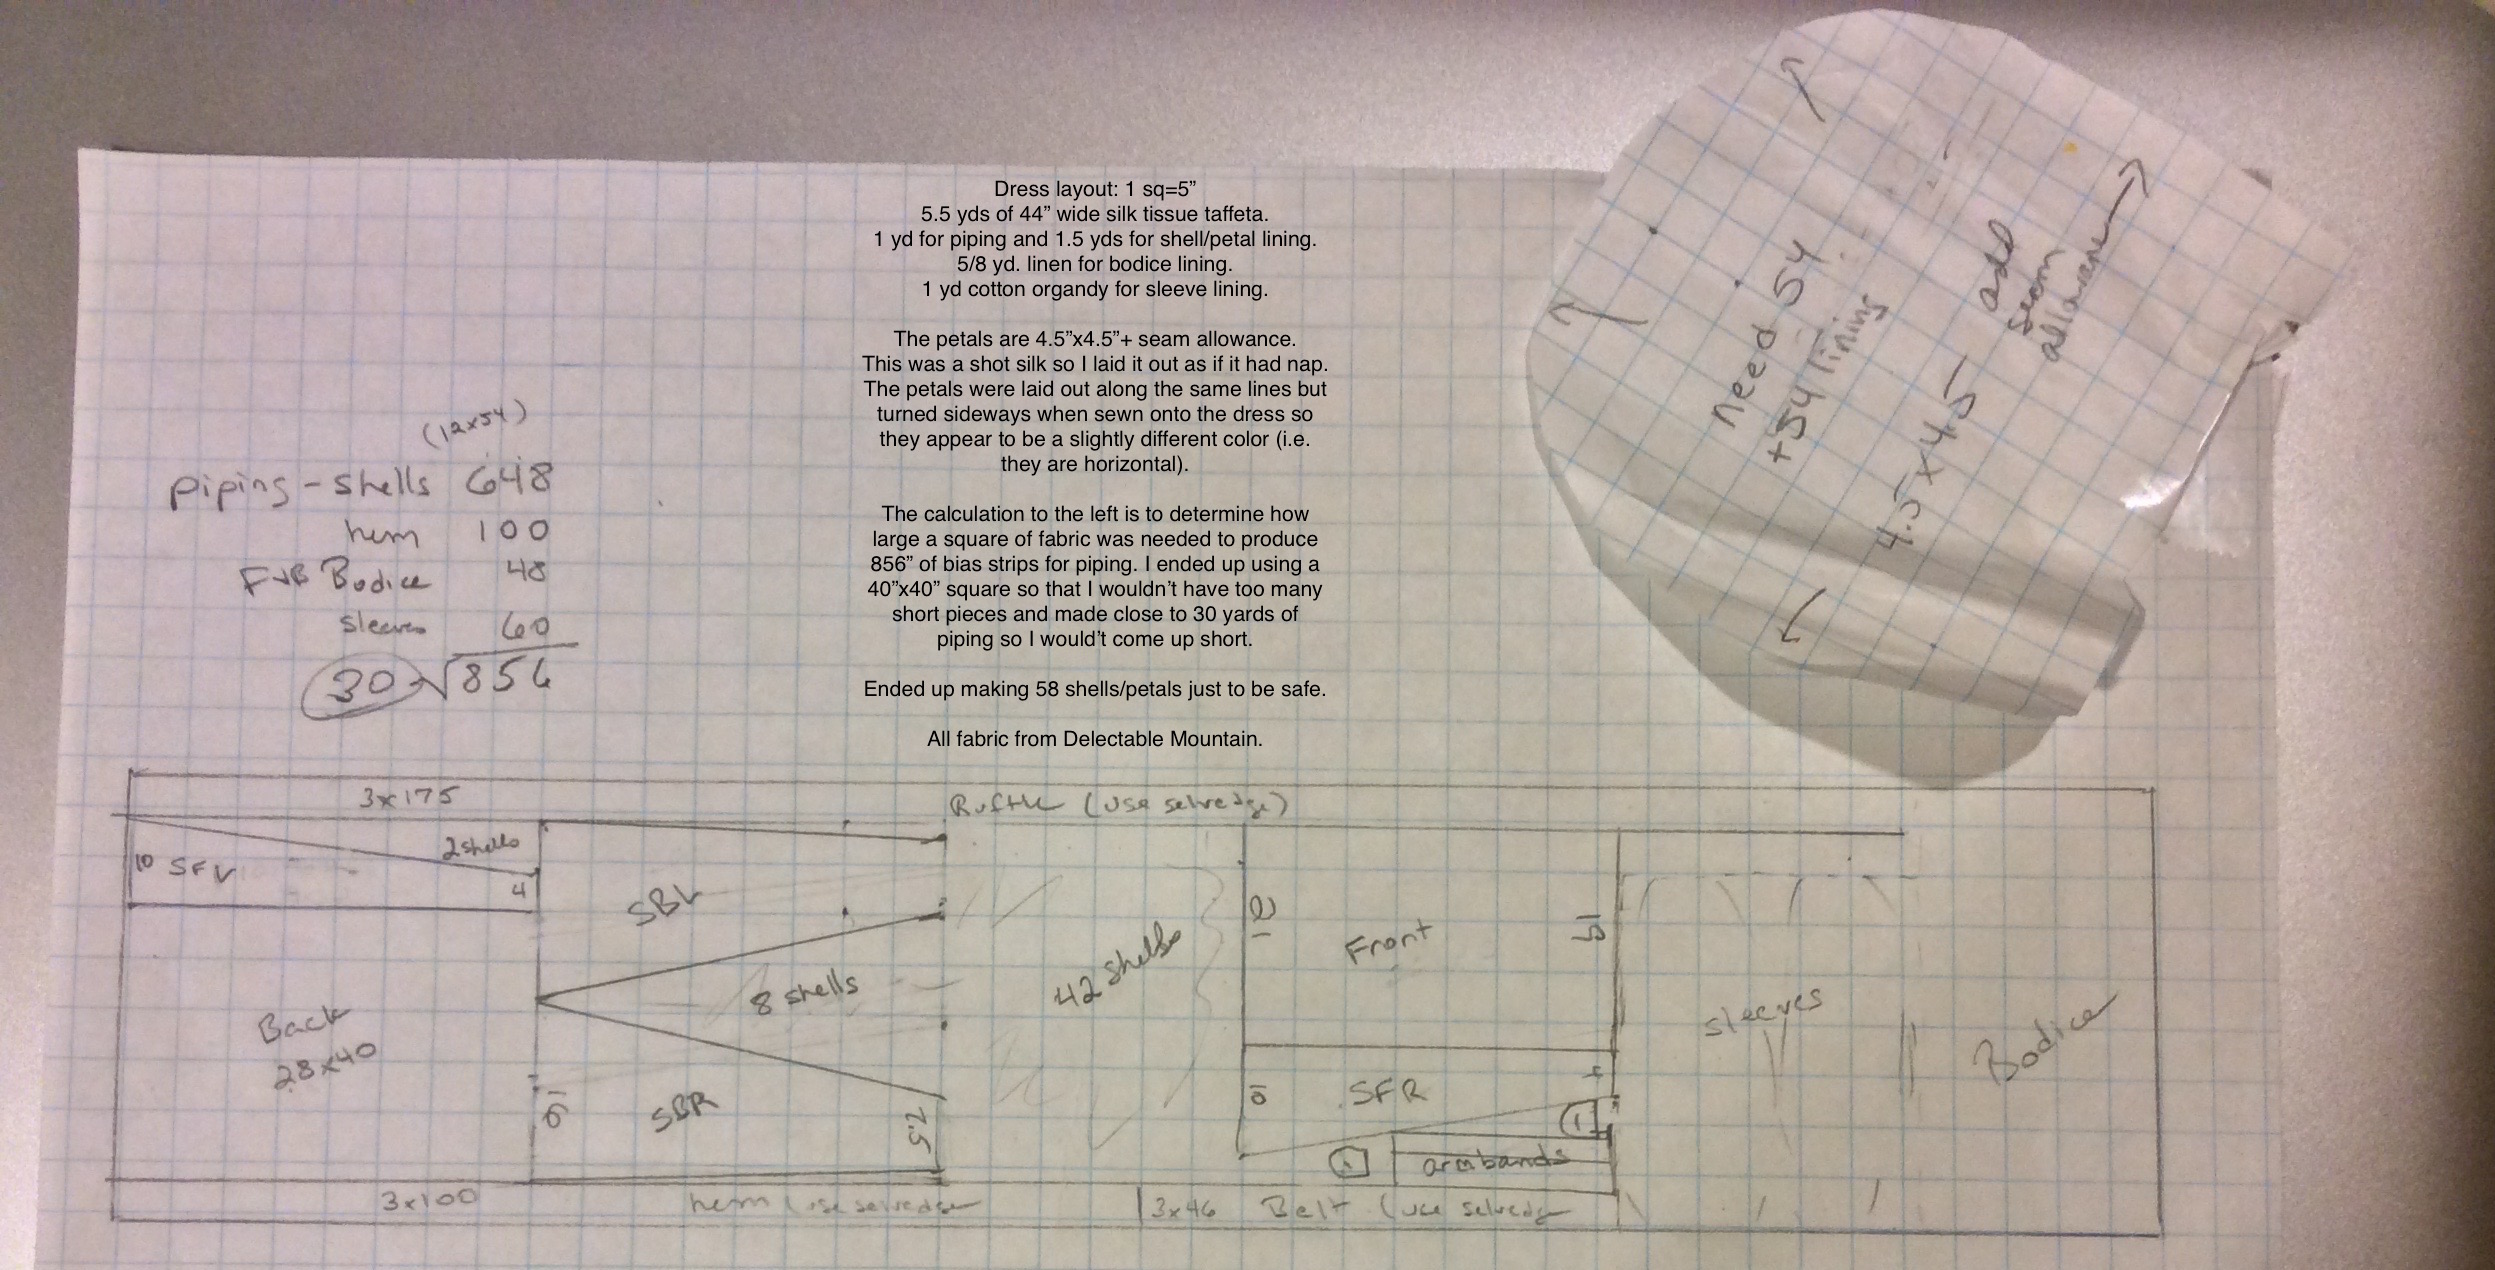 Dress layout: 1 sq=5”
5.5 yds of 44” wide silk tissue taffeta.
1 yd for piping and 1.5 yds for shell/petal lining.
5/8 yd. linen for bodice lining.
1 yd cotton organdy for sleeve lining.
The petals are 4.5”x4.5”+ seam allowance.
This was a shot silk so I laid it out as if it had nap.
The petals were laid out along the same lines but
turned sideways when sewn onto the dress so
they appear to be a slightly different color (i.e.
they are horizontal).
The calculation to the left is to determine how
large a square of fabric was needed to produce
856” of bias strips for piping. I ended up using a
40”x40” square so that I wouldn’t have too many
short pieces and made close to 30 yards of
piping so I would’t come up short.
Ended up making 58 shells/petals just to be safe.
All fabric from Delectable Mountain.
need 54
+54 lining
4.5x4.5
add
seam
allowance
(12x54)
piping - shells 648
hem 100
F+B Bodice 48
sleeves 60
30 √856
3x175
Ruffle (use selvedge)
2 shells
10 SFL
4
SBL
8 shells
42 shells
12
Front
15
Back
28x40
SBR
19
7.5
10
SFR
4
armbands
sleeves
Bodice
3x100
hem (use selvedge
3x46 Belt (use selvedge